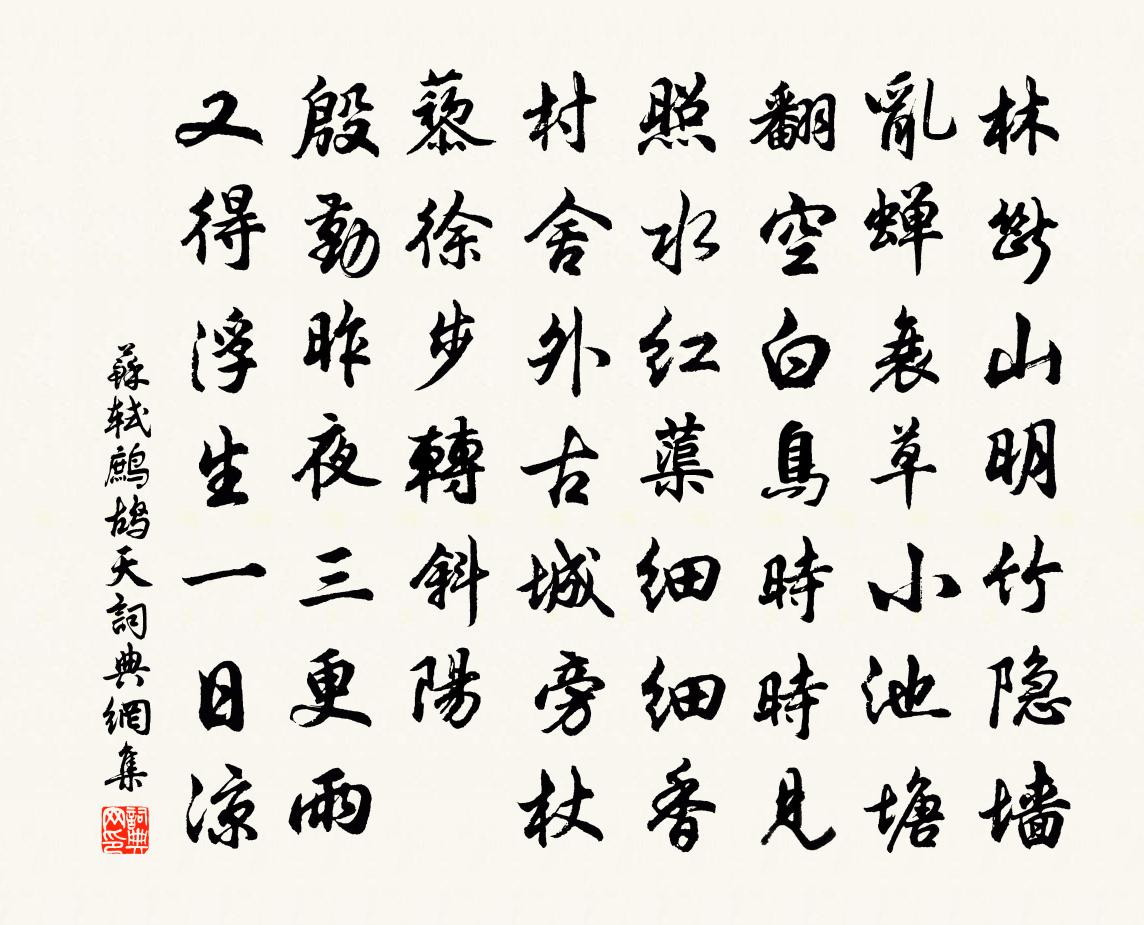 林斷山明竹隐墙
亂蝉衰草小池塘
翻空白鳥時時見
照水红蕖细细香
村舍外古城旁杖
藜徐步轉斜陽
殷勤昨夜三更雨
又得浮生一日凉
蘇軾鷓鴣天詞典網集
詞典网印